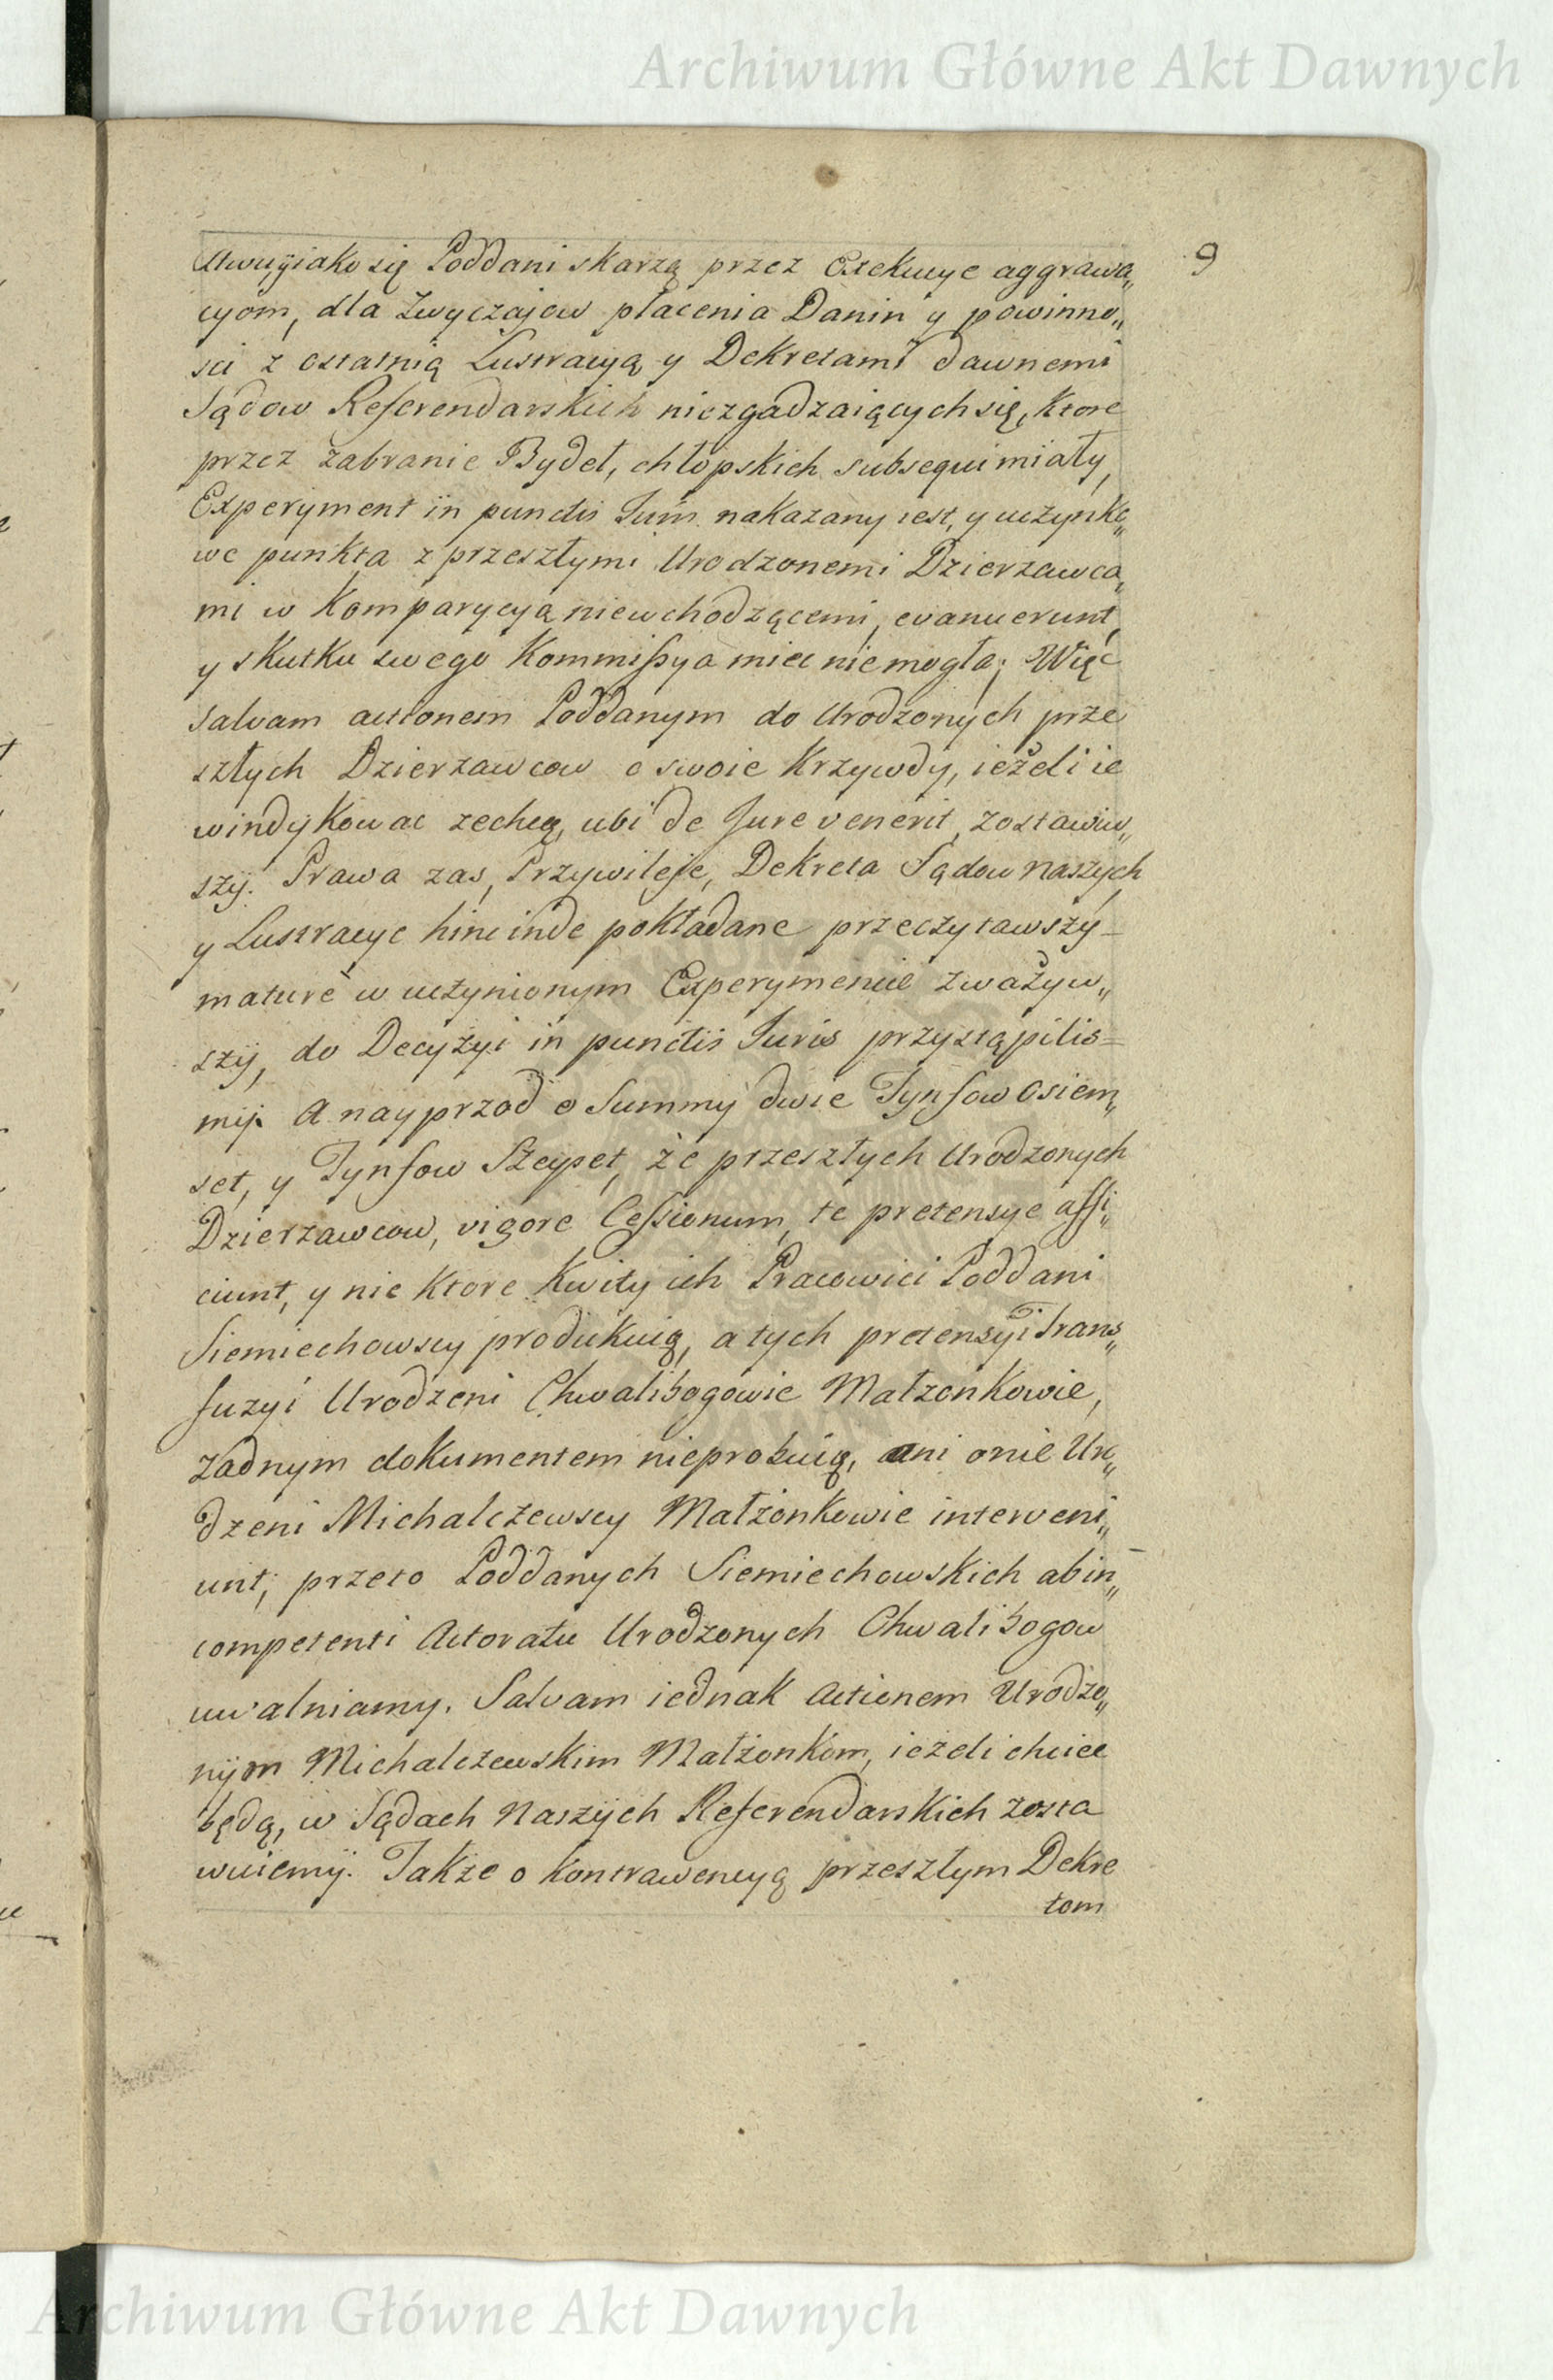 Archiwum Główne Akt Dawnych
9
iako się Poddani skarzą przez Exekucye aggrawa„
cyom, dla Zwyczajow płacenia Danin y powinno„
sci z ostatnią Lustracyą y Dekretami dawnemi
Sądow Referendarskich niezgadzaiących się, Ktore
przez zabranie Bydeł, chłopskich subsequi miały,
Experyment in punctis Juris nakazany iest, y uczynko„
we punkta z przeszłymi Urodzonemi Dzierzawca„
mi w Komparycyą niewchodzącemi, evanuerunt,
y skutku swego Kommissya miec niemogła; Więc
salvam actionem Poddanym do Urodzonych prze
szłych Dzierzawcow o swoie Krzywdy, ieżeli ie
windykowac zechcą, ubi de Jure venerit, zostawiw„
szy. Prawa zas, Przywileje, Dekreta Sądow Naszych
y Lustracye hinc inde pokładane przeczytawszy –
maturè w uczynionym Experymencie zważyw„
szy, do Decyzyi in punctis Juris przystąpilis=
my. A nayprzod o Summy dwie Tynfow Osiem„
set, y Tynfow Szeyset, że przeszłych Urodzonych
Dzierzawcow, vigore Cessionum, te pretensye affi„
ciunt, y nie ktore Kwity ich Pracowici Poddani
Siemiechowscy produkuią, a tych pretensyi Trans„
fuzyi Urodzeni Chwalibogowie Małzonkowie,
żadnym dokumentem nieprobuią, ani o nie Uro„
dzeni Michalczewscy Małżonkowie interveni„
unt; przeto Poddanych Siemiechowskich ab in„
competenti Actoratu Urodzonych Chwalibogow
uwalniamy. Salvam iednak Actionem Urodzo„
nym Michalczewskim Małżonkom, ieżeli chciec
będą, w Sądach Naszych Referendarskich zosta
wuiemy. Także o Kontrawencyą przeszłym Dekre
tom
Archiwum Główne Akt Dawnych